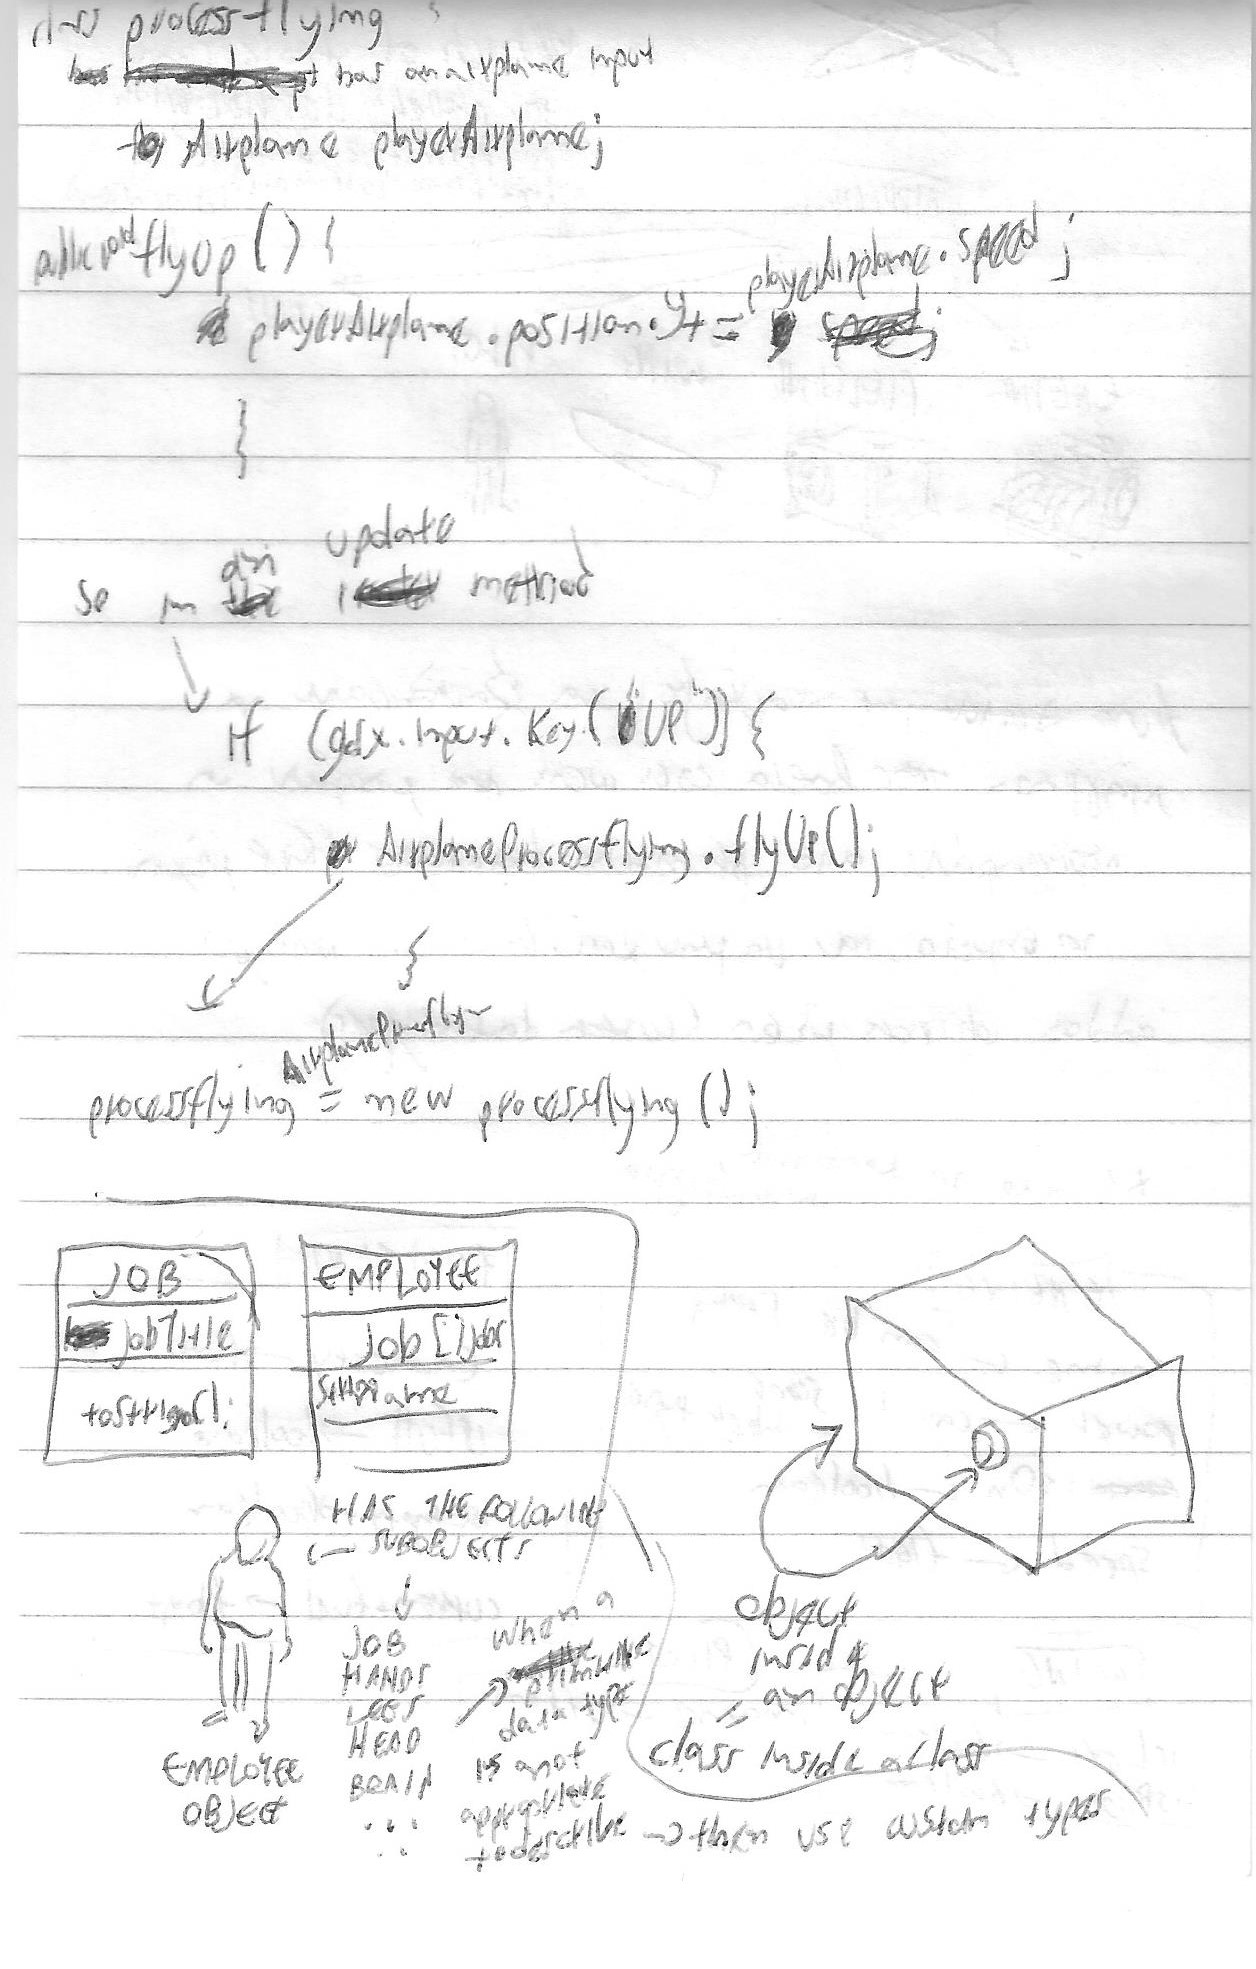 class processflying {
has an airplane input
Airplane playerAirplane;
public void flyUp () {
playerAirplane.position.y += playerAirplane.speed;
}
So in an update method
If (gdx.input.Key("UP")) {
AirplaneProcessflying.flyUp();
}
processflying AirplaneProcessflying = new processflying ();
JOB
jobTitle
toString();
EMPLOYEE
Job [] job
name
HAS THE FOLLOWING
SUBOBJECTS
JOB
HANDS
LEGS
HEAD
BRAIN
...
EMPLOYEE
OBJECT
when a
primitive
data type
is not
appropriate
to describe → then use custom types
object
inside
an object
=
class inside a class